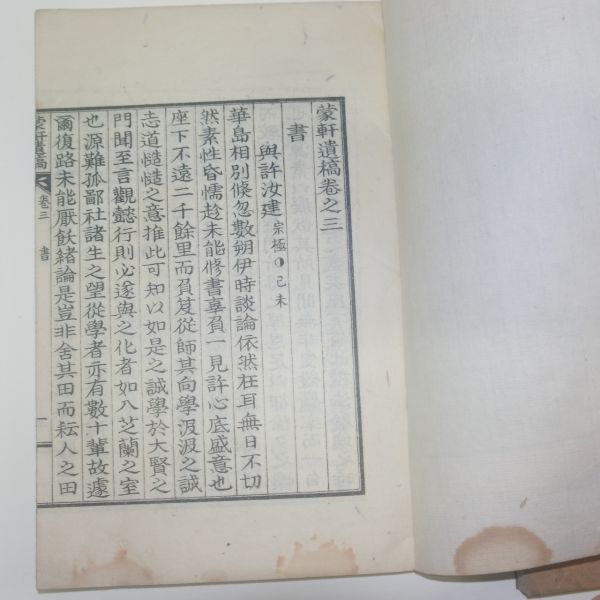 蒙軒遺稿卷之三
書
與許汝建 宗極○己未
華島相別倏忽數朔伊時談論依然在耳無日不切
然素性昏懦趁未能修書辜負一見許心底盛意也
座下不遠二千餘里而負笈從師其向學汲汲之誠
志道慥慥之意推此可知以如是之誠學於大賢之
門聞至言觀懿行則必遂與之化者如入芝蘭之室
也源難孤鄙社諸生之望從學者亦有數十輩故遽
爾復路未能厭飮緒論是豈非舍其田而耘人之田
蒙軒遺稿 卷三 書 一